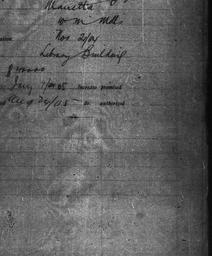 Marietta
W. M. Mills
Nov 2/04
Library Building
8
Jany 1/05 Increase promised
Aug 24/05 do authorized